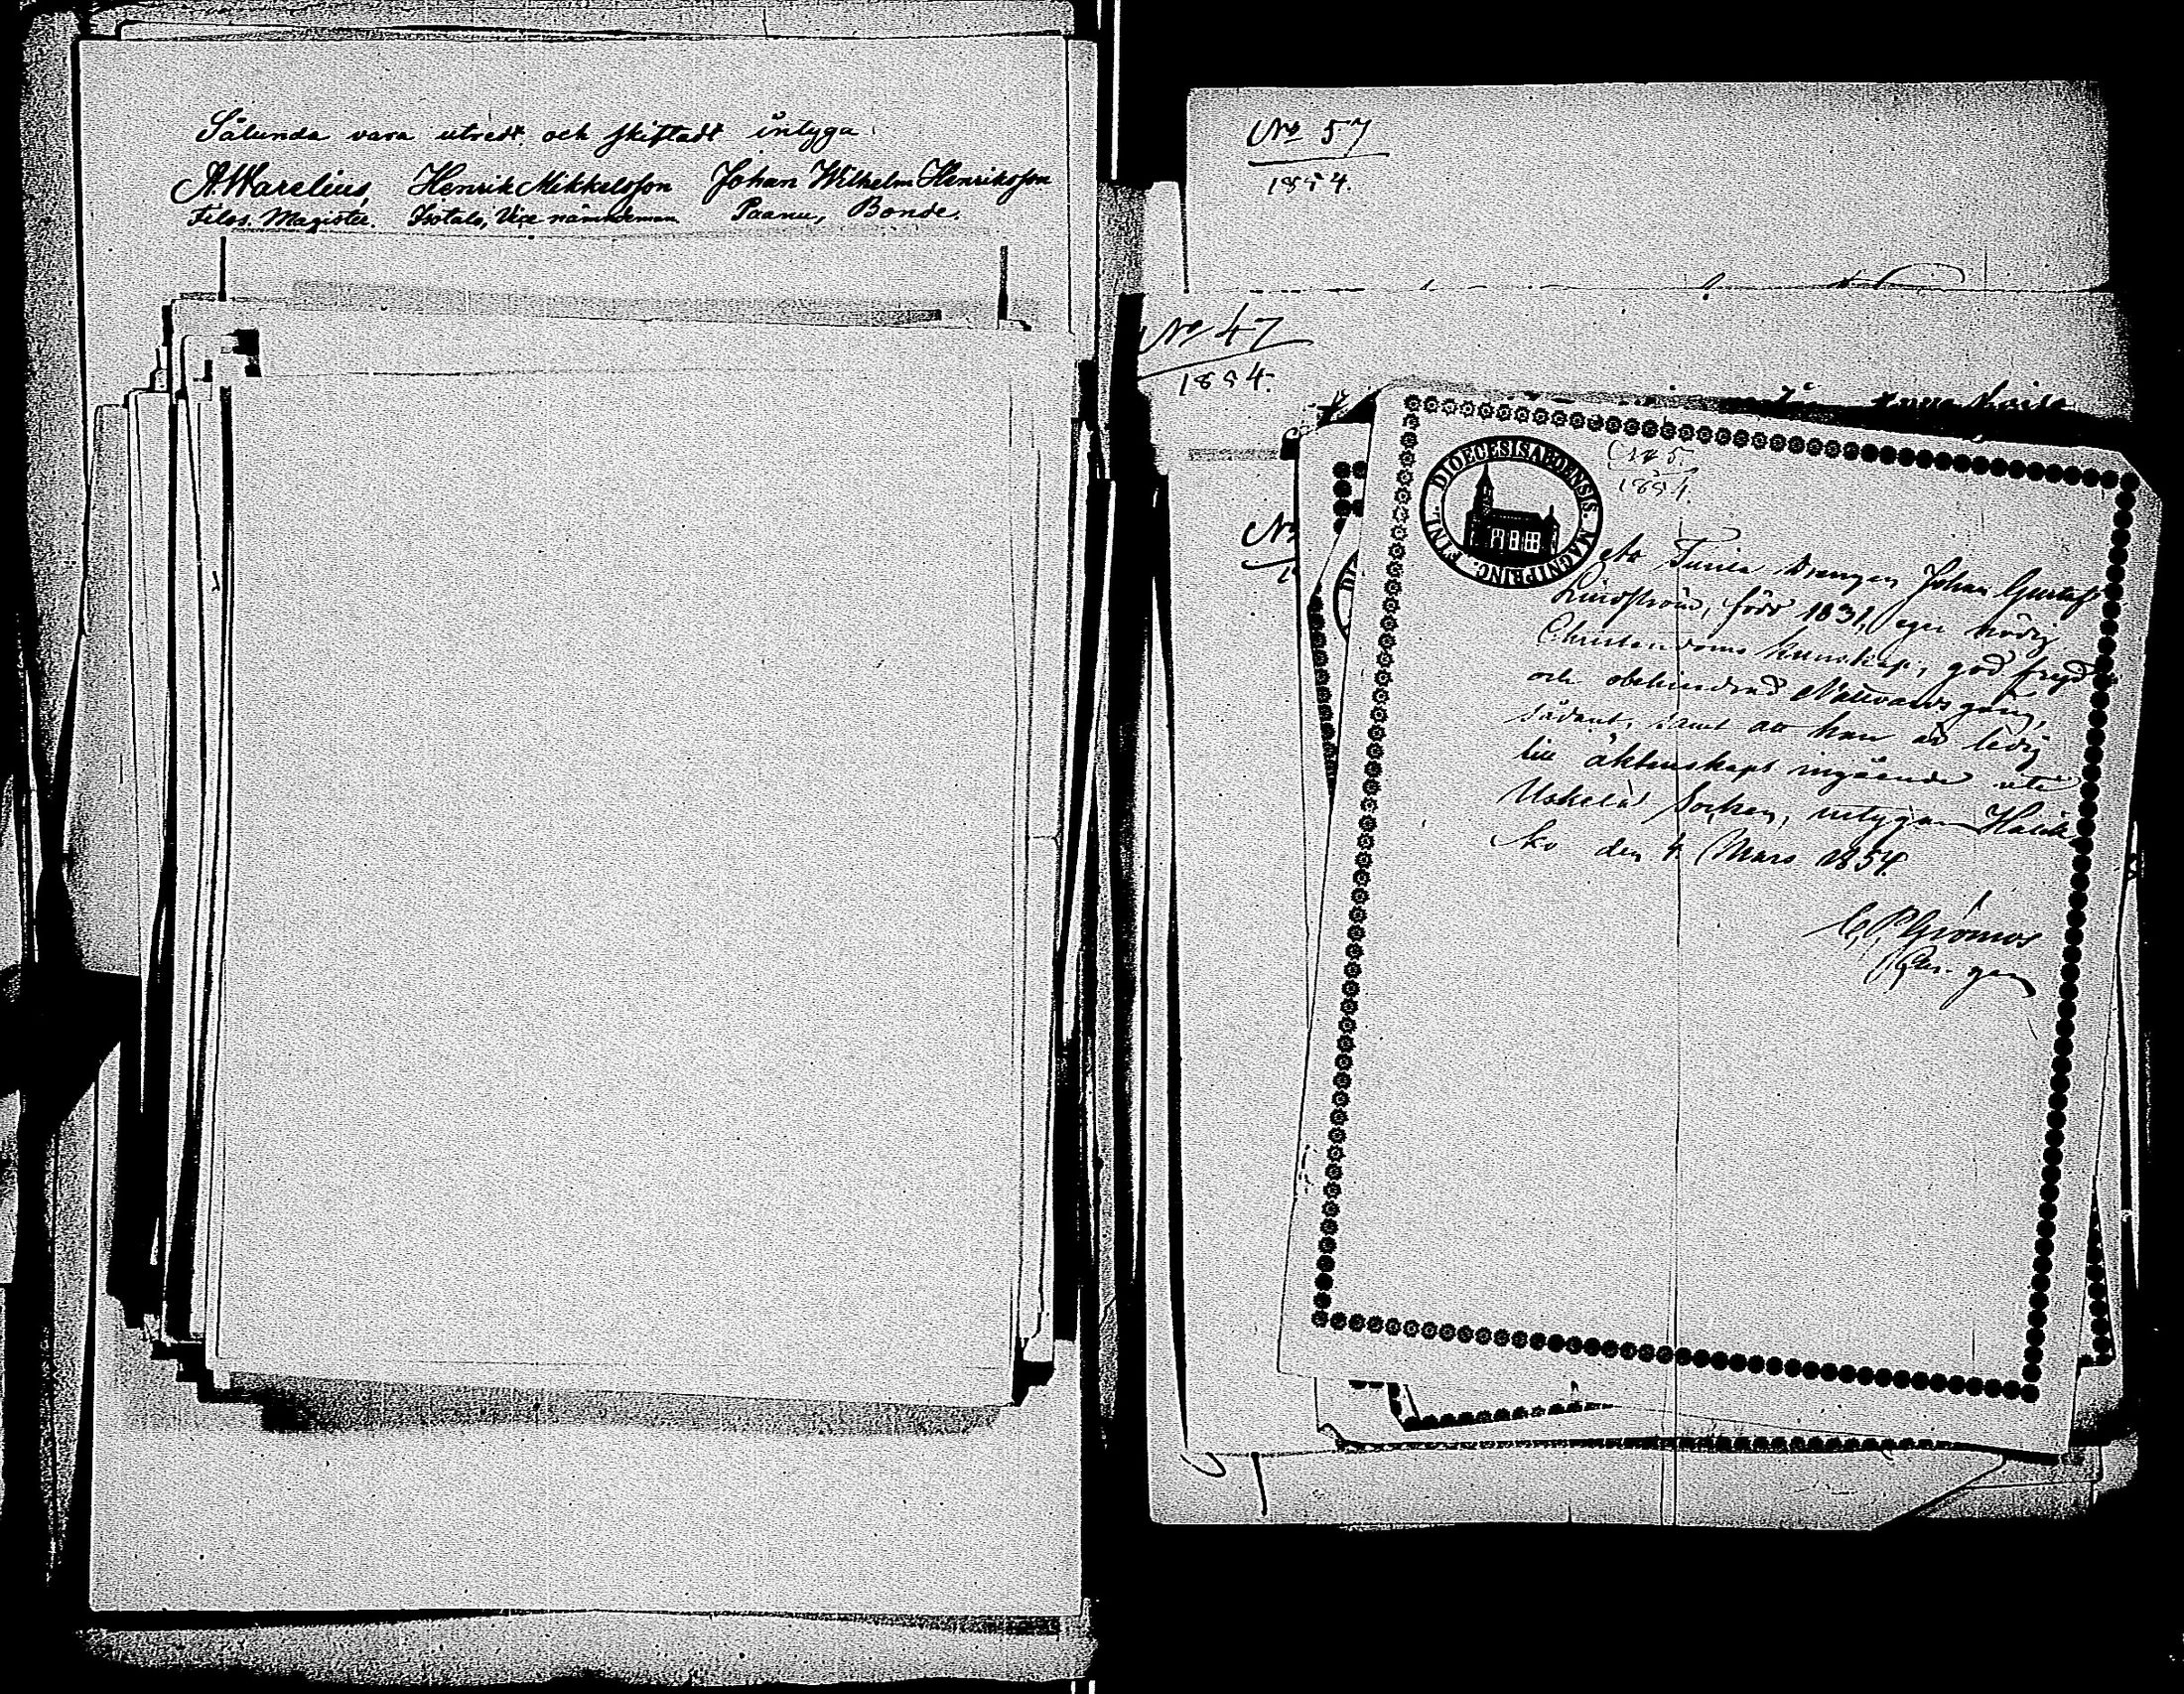 Sålunda vara utredt och skiftadt intyga
A. Warelius, Henrik Mikkelsson Johan Wilhelm Henriksson
Filos. Magister. Isotalo, Vice nämndeman Paanu, Bonde.
No 57
1854.
No 47
1854.
Anna Lovisa
No 5
1854.
DIOECESIS ABOENSIS. MAGNI PRINC. FINL.
Drengen Johan Gustaf
Lindström, född 1831, eger nödig
Christendoms kunskap, god frejd
och obehindrad Nattvardsgång,
sådant, samt att han är ledig
till äktenskaps ingående uti
Uskela Socken, intygar Halik
ko den 4 Mars 1854.